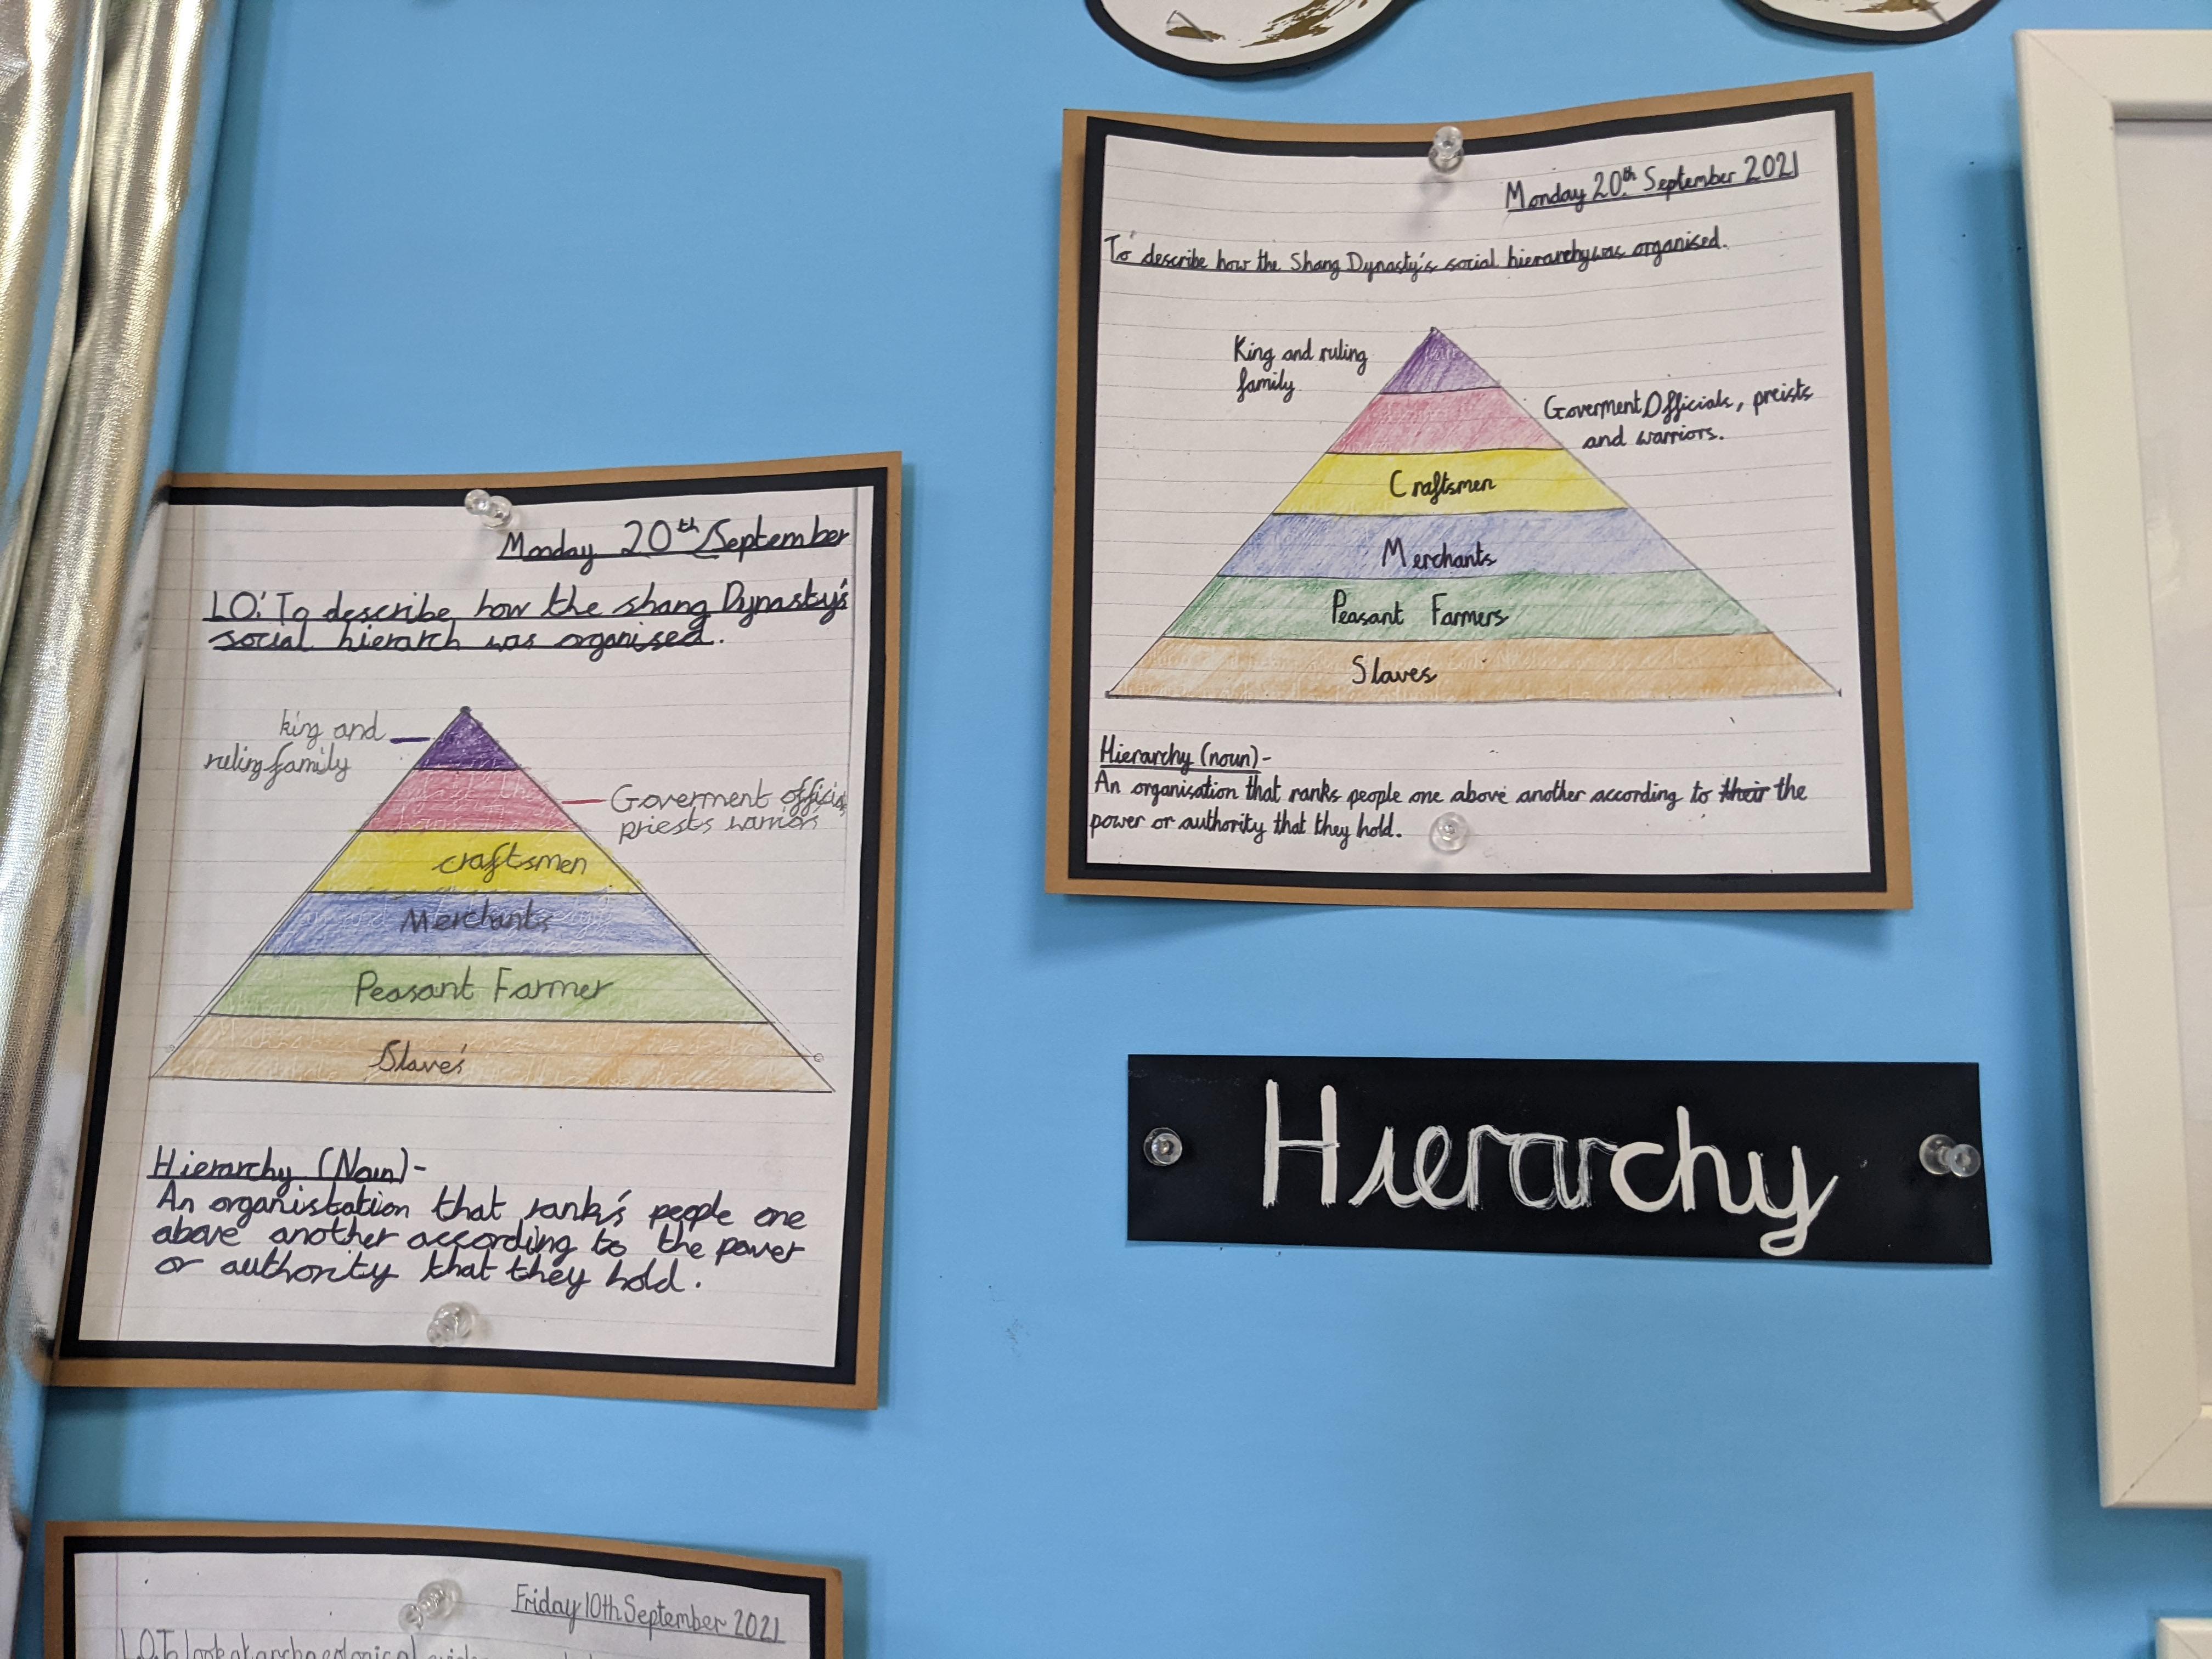 Monday 20th September 2021
To describe how the Shang Dynasty's social hierarchy was organised.
King and ruling
family
Goverment Officials, preists
and warriors.
Craftsmen
Merchants
Peasant Farmers
Slaves
Hierarchy (noun)-
An organisation that ranks people one above another according to their the
power or authority that they hold.
Monday 20th September
LO: To describe how the shang Dynasty's
social hierarch was organised.
king and
ruling family
Goverment
priests warriors
craftsmen
Merchants
Peasant Farmer
Slave's
Hierarchy (Noun)-
An organistation that rank's people one
above another according to the power
or authority that they hold.
Hierarchy
Friday 10th September 2021
LO.To look at archaeological